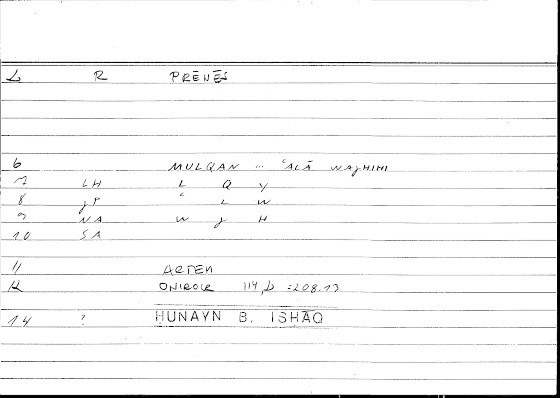 L R PRĒNĒS
6 MULQAN ... ʿALĀ WAJHIHI
7 LH L Q Y
8 JP ʿ L W
9 NA W J H
10 SA
11 ARTEM
12 ONIROCR 114,b = 208.13
14 ? HUNAYN B. ISHĀQ